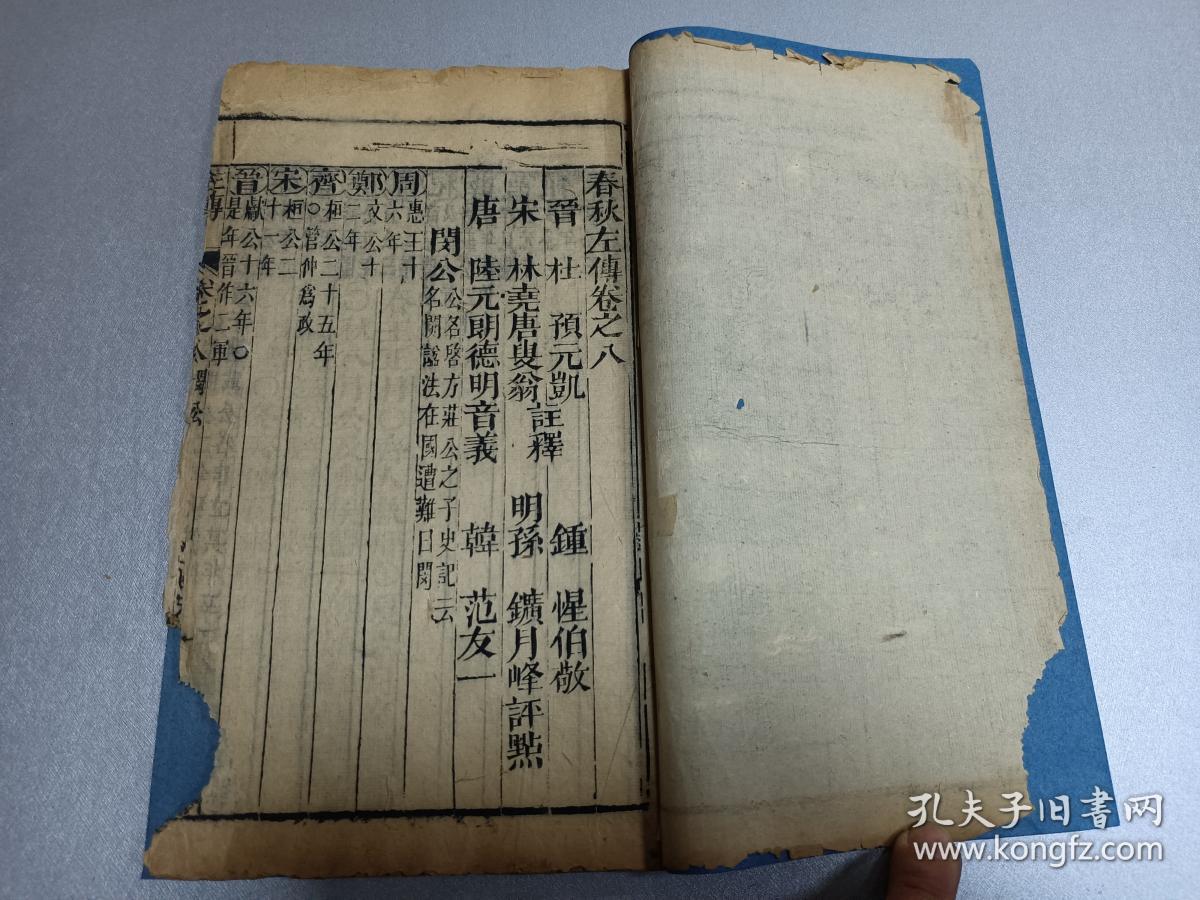 春秋左傳卷之八
晉 杜 預元凱 鍾 惺伯敬
宋 林堯唐叟翁 註釋 明孫 鑛月峰 評點
唐 陸元朗德明音義 韓 范友一
閔公 公名啓方莊公之子史記云
名開諡法在國遭難曰閔
周 惠王十
六年
鄭 文公十
二年
齊 桓公二十五年
○管仲爲政
宋 桓公二
十一年
晉 獻公十六年○
是年晉作二軍
左傳 卷之八 閔公
孔夫子旧书网
www.kongfz.com